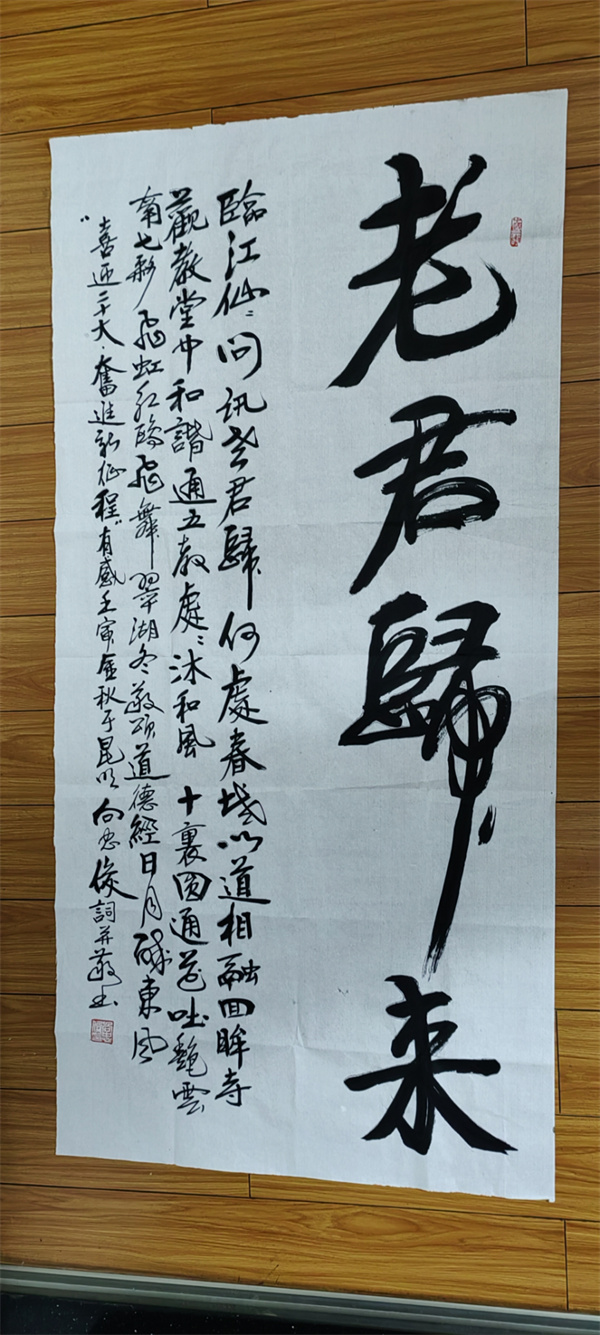 老君歸来
臨江仙:問訊老君歸何處春城以道相融回眸寺
觀教堂中和諧通五教處:沐和風十裏圓通花吐艷雲
南七彩飛虹紅鷗飛舞翠湖冬敬頌道德經日月醉東風
“喜迎二十大·奮進新征程”有感壬寅金秋于昆明向忠俊詞并敬书